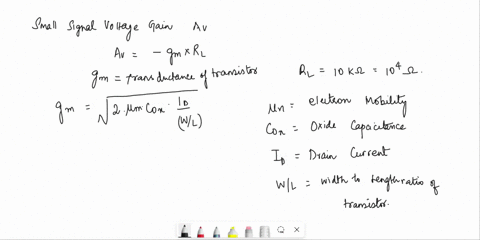 Small Signal Voltage Gain Av
Av = - gm × RL
gm = transductance of transistor
gm = √(2 · μm Cox · ID / (W/L))
RL = 10 KΩ = 10⁴ Ω.
μn = electron Mobility
Cox = Oxide Capacitance
ID = Drain Current
W/L = width to length ratio of
transistor.